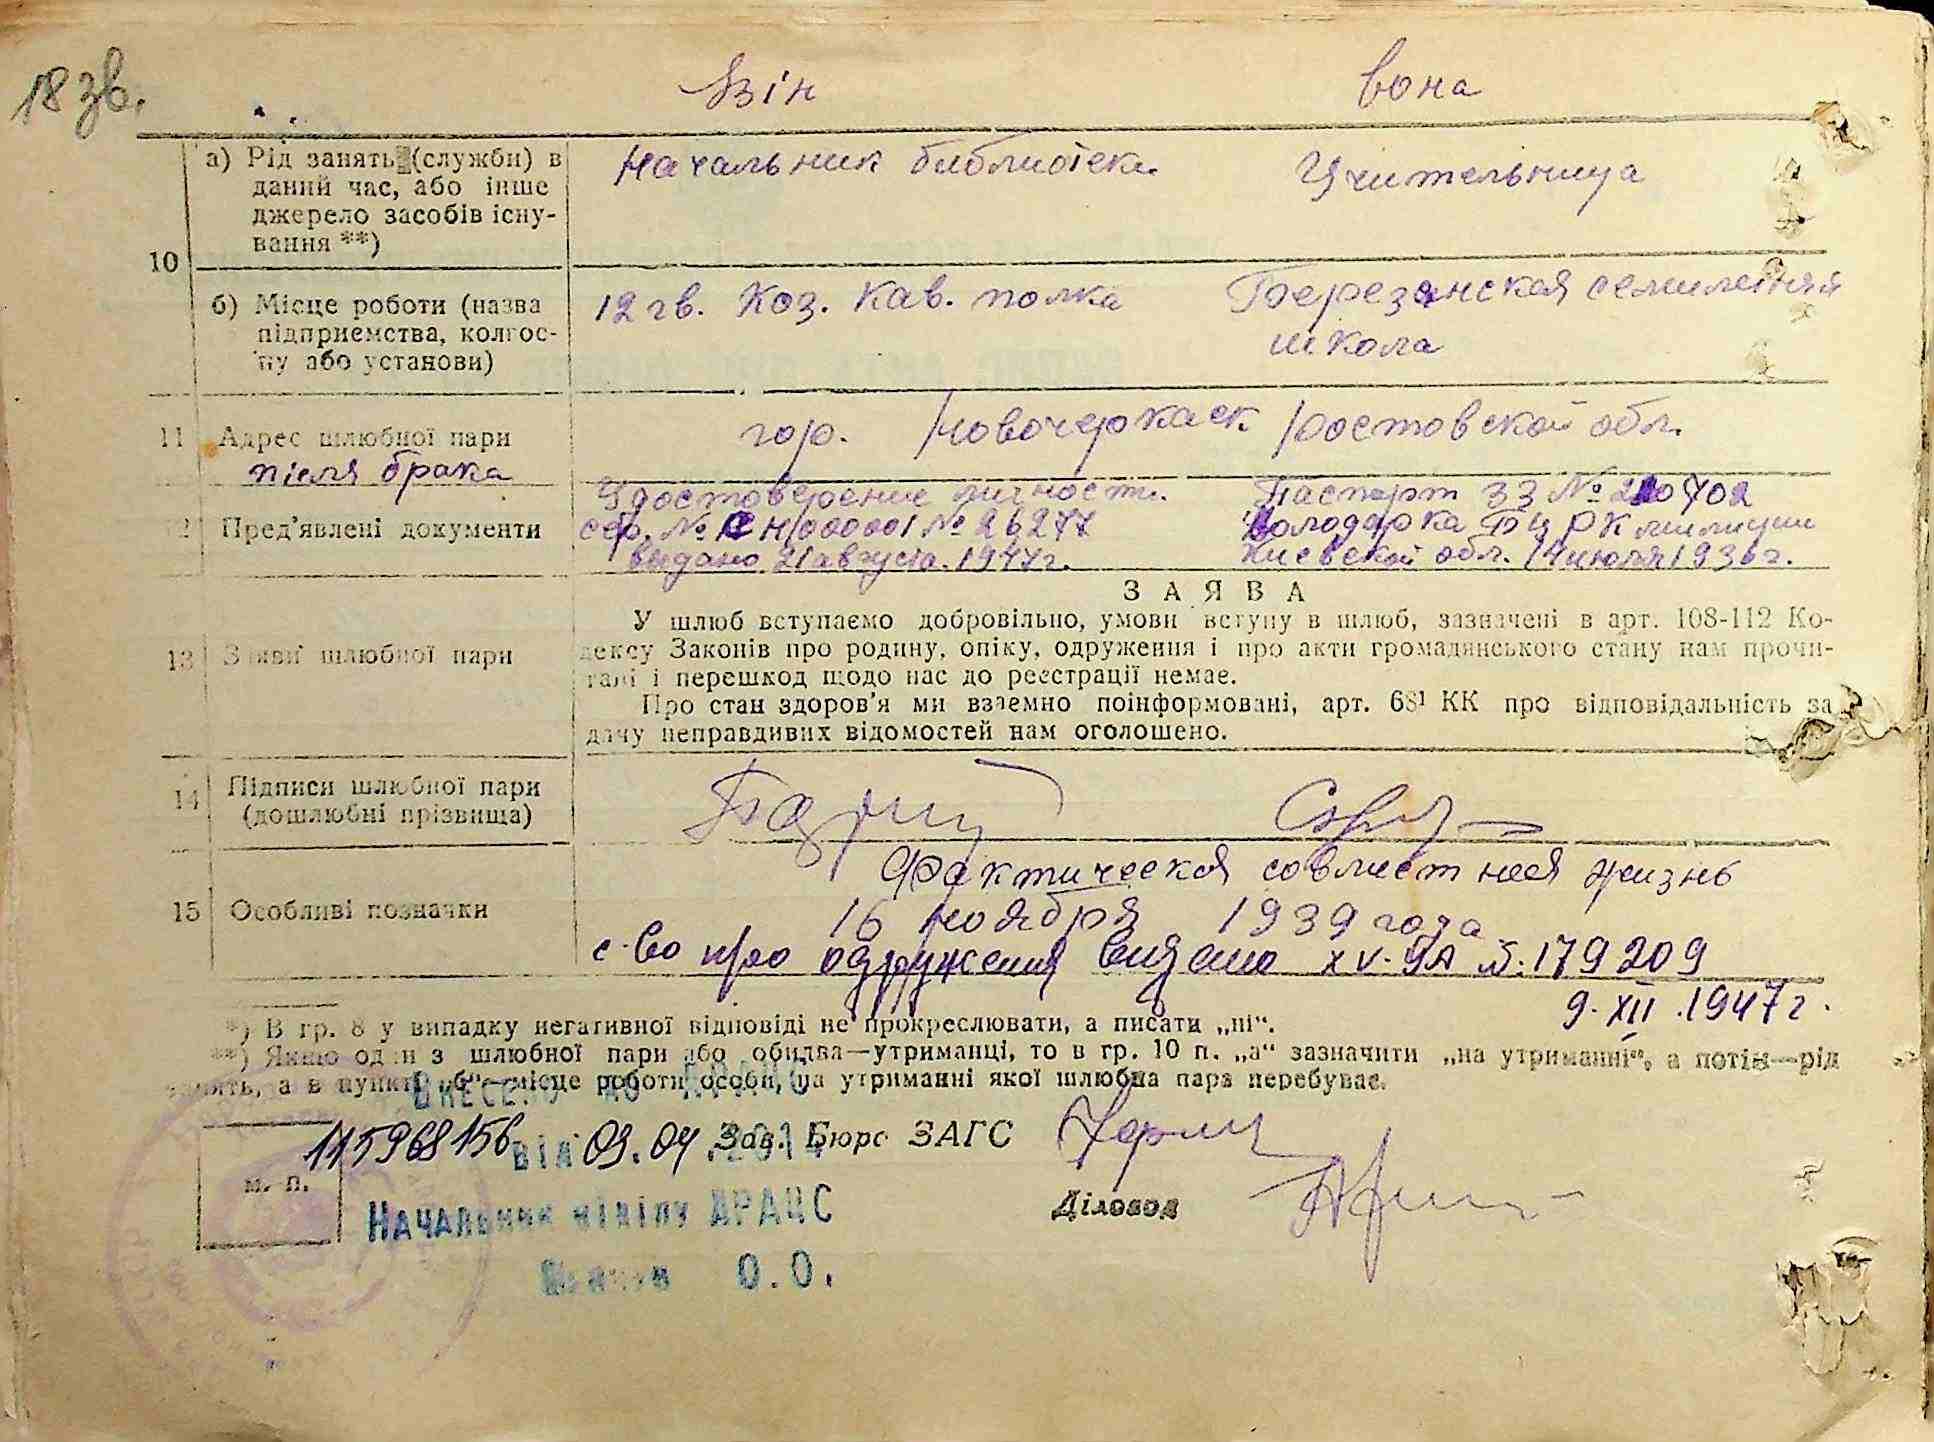 18 зв.
Він Вона
а) Рід занять (служби) в
даний час, або інше
джерело засобів існу-
вання **)
Начальник библиотеки Учительница
10
б) Місце роботи (назва
підприємства, колгос-
пу або установи)
12 гв. Каз. Кав. полка Березанская семилетняя
школа
11 Адрес шлюбної пари
після брака
гор. Новочеркаск Ростовской обл.
12 Пред’явлені документи
Удостоверение личности. Паспорт ЗЗ №
сер. № 000001 № 26277 Володарка РК милиции
выдано 21 августа. 1947 г. Киевской обл. 14 июля 1936 г.
ЗАЯВА
13 Заяви шлюбної пари
У шлюб вступаємо добровільно, умови вступу в шлюб, зазначені в арт. 108-112 Ко-
дексу Законів про родину, опіку, одруження і про акти громадянського стану нам прочи-
тані і перешкод щодо нас до реєстрації немає.
Про стан здоров’я ми взаємно поінформовані, арт. 68¹ КК про відповідальність за
дачу неправдивих відомостей нам оголошено.
14 Підписи шлюбної пари
(дошлюбні прізвища)
15 Особливі позначки
Фактическая совместная жизнь
16 ноября 1939 года
с-во про одруження видано XV-УА №. 179209
9. XII. 1947 г.
*) В гр. 8 у випадку негативної відповіді не прокреслювати, а писати „ні“.
**) Якщо один з шлюбної пари або обидва—утриманці, то в гр. 10 п. „а“ зазначити „на утриманні“, а потім—рід
занять, а в пункті „б“—місце роботи особи, на утриманні якої шлюбна пара перебуває.
Внесено до
115968156 від 09.04.2014
Зав. Бюро ЗАГС
м. п.
Діловод
Начальник відділу ДРАЦС
О.О.